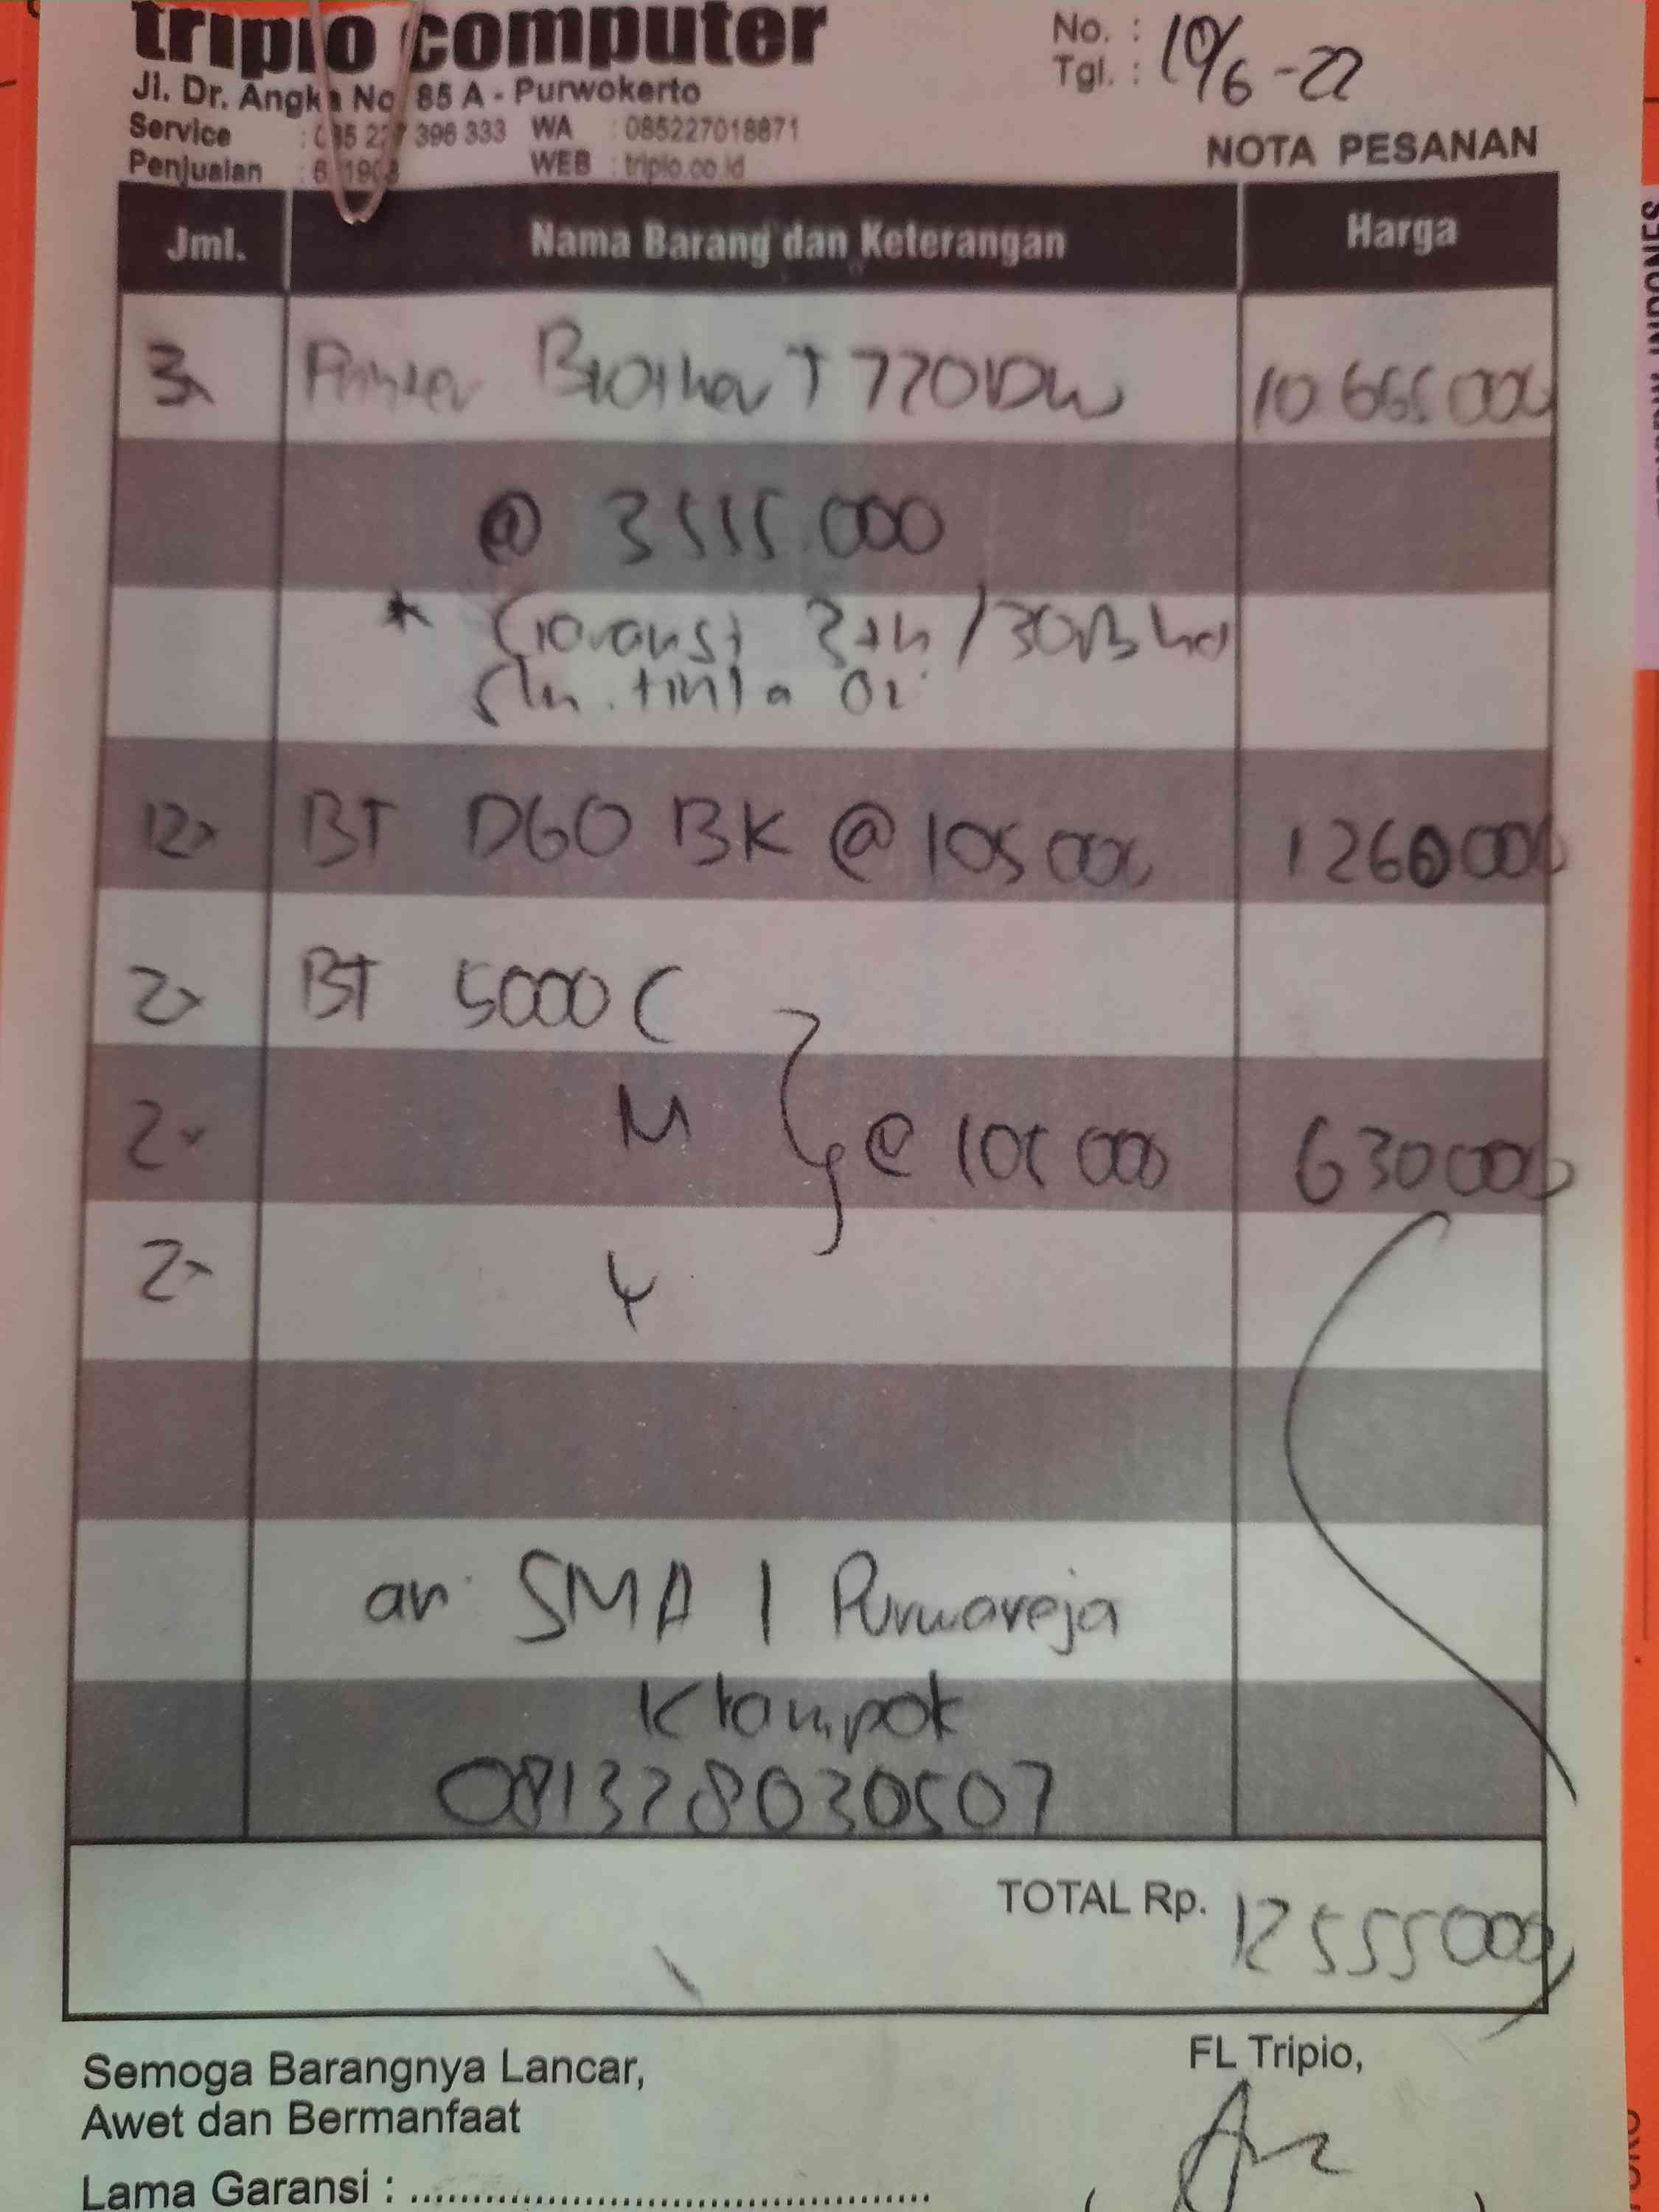 tripio computer
No. :
Jl. Dr. Angka No. 85 A - Purwokerto
Tgl. : 10/6-22
Service : 396 333 WA : 085227018871
Penjualan : WEB : tripio.co.id
NOTA PESANAN
Jml. Nama Barang dan Keterangan Harga
3x Printer Brother T 770DW 10 665 000
@ 3555.000
* Garansi 3th / 30rb hal
Slm. tinta Ori
12x BT D60 BK @ 105 000 1260 000
2x BT 5000 C
2x M @ 105 000 630 000
2x Y
an. SMA 1 Purwareja
Klampok
081328030507
TOTAL Rp. 12 555 000
Semoga Barangnya Lancar,
Awet dan Bermanfaat
FL Tripio,
Lama Garansi :